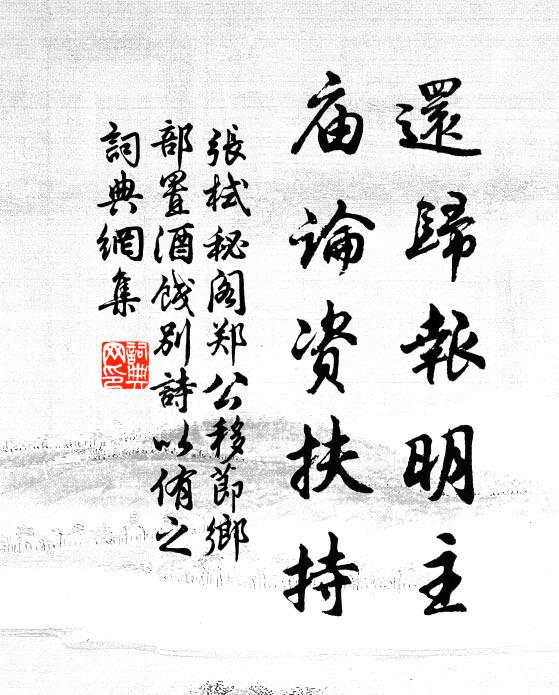 還歸報明主
庙論资扶持
張栻秘阁郑公移莭鄉
部置酒饯別詩以侑之
詞典網集
詞典
网印